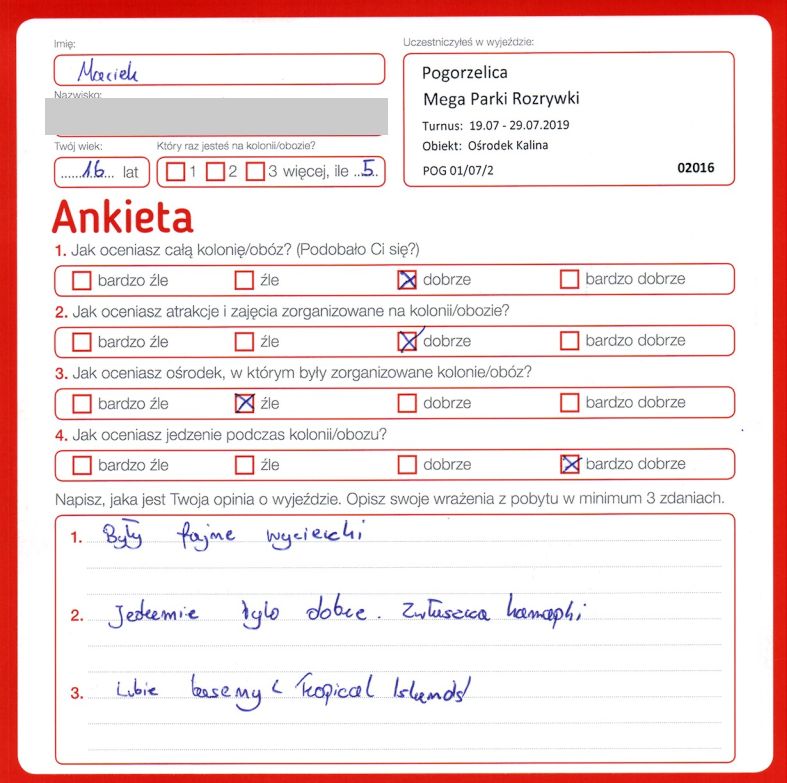 Imię:
Uczestniczyłeś w wyjeździe:
Maciek
Pogorzelica
Mega Parki Rozrywki
Nazwisko:
Turnus: 19.07 - 29.07.2019
Twój wiek:
Który raz jesteś na kolonii/obozie?
Obiekt: Ośrodek Kalina
......16... lat
1 2 3 więcej, ile ..5..
POG 01/07/2
02016
Ankieta
1. Jak oceniasz całą kolonię/obóz? (Podobało Ci się?)
bardzo źle źle dobrze bardzo dobrze
2. Jak oceniasz atrakcje i zajęcia zorganizowane na kolonii/obozie?
bardzo źle źle dobrze bardzo dobrze
3. Jak oceniasz ośrodek, w którym były zorganizowane kolonie/obóz?
bardzo źle źle dobrze bardzo dobrze
4. Jak oceniasz jedzenie podczas kolonii/obozu?
bardzo źle źle dobrze bardzo dobrze
Napisz, jaka jest Twoja opinia o wyjeździe. Opisz swoje wrażenia z pobytu w minimum 3 zdaniach.
1. Były fajne wycieczki
2. Jedzenie było dobre. Zwłaszcza kanapki
3. Lubie baseny ( Tropical Islands)